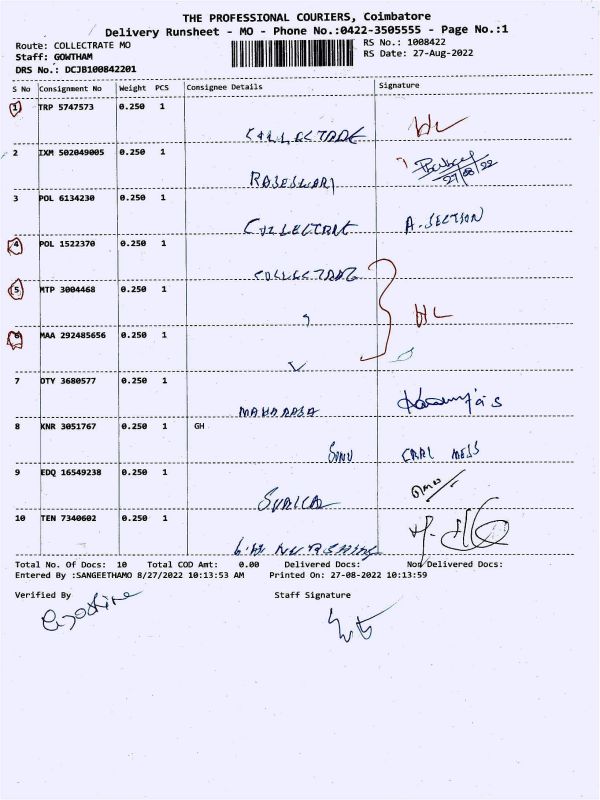 THE PROFESSIONAL COURIERS, Coimbatore
Delivery Runsheet - MO - Phone No.:0422-3505555 - Page No.:1
Route: COLLECTRATE MO
RS No.: 1008422
Staff: GOWTHAM
RS Date: 27-Aug-2022
DRS No.: DCJB100842201
S No Consignment No Weight PCS Consignee Details Signature
1 TRP 5747573 0.250 1
COLLECTRATE HL
2 IXM 502049005 0.250 1
27/08/22
3 POL 6134230 0.250 1
COLLECTRATE A. SECTION
4 POL 1522370 0.250 1
COLLECTRATE
5 MTP 3004468 0.250 1
" HL
6 MAA 292485656 0.250 1
7 OTY 3680577 0.250 1
8 KNR 3051767 0.250 1 GH
9 EDQ 16549238 0.250 1
10 TEN 7340602 0.250 1
Total No. Of Docs: 10 Total COD Amt: 0.00 Delivered Docs: Non Delivered Docs:
Entered By :SANGEETHAMO 8/27/2022 10:13:53 AM Printed On: 27-08-2022 10:13:59
Verified By Staff Signature